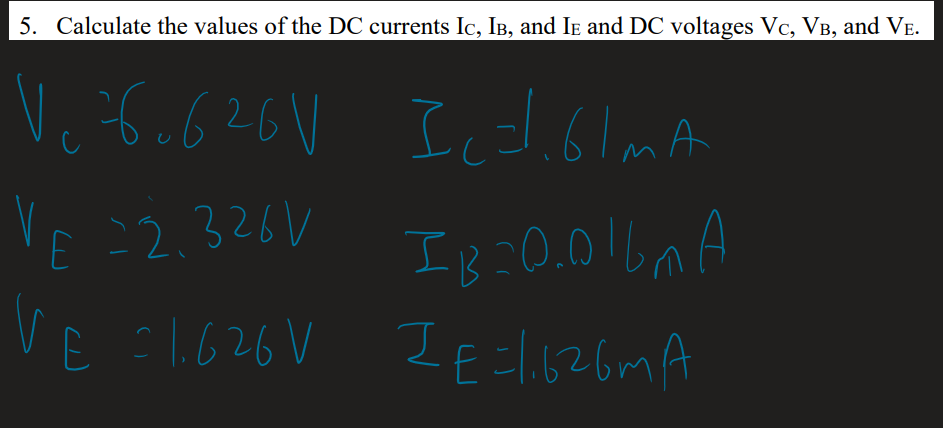 5. Calculate the values of the DC currents IC, IB, and IE and DC voltages VC, VB, and VE.
VC = 6.626V IC = 1.61mA
VE = 2.326V IB = 0.016mA
VE = 1.626V IE = 1.626mA